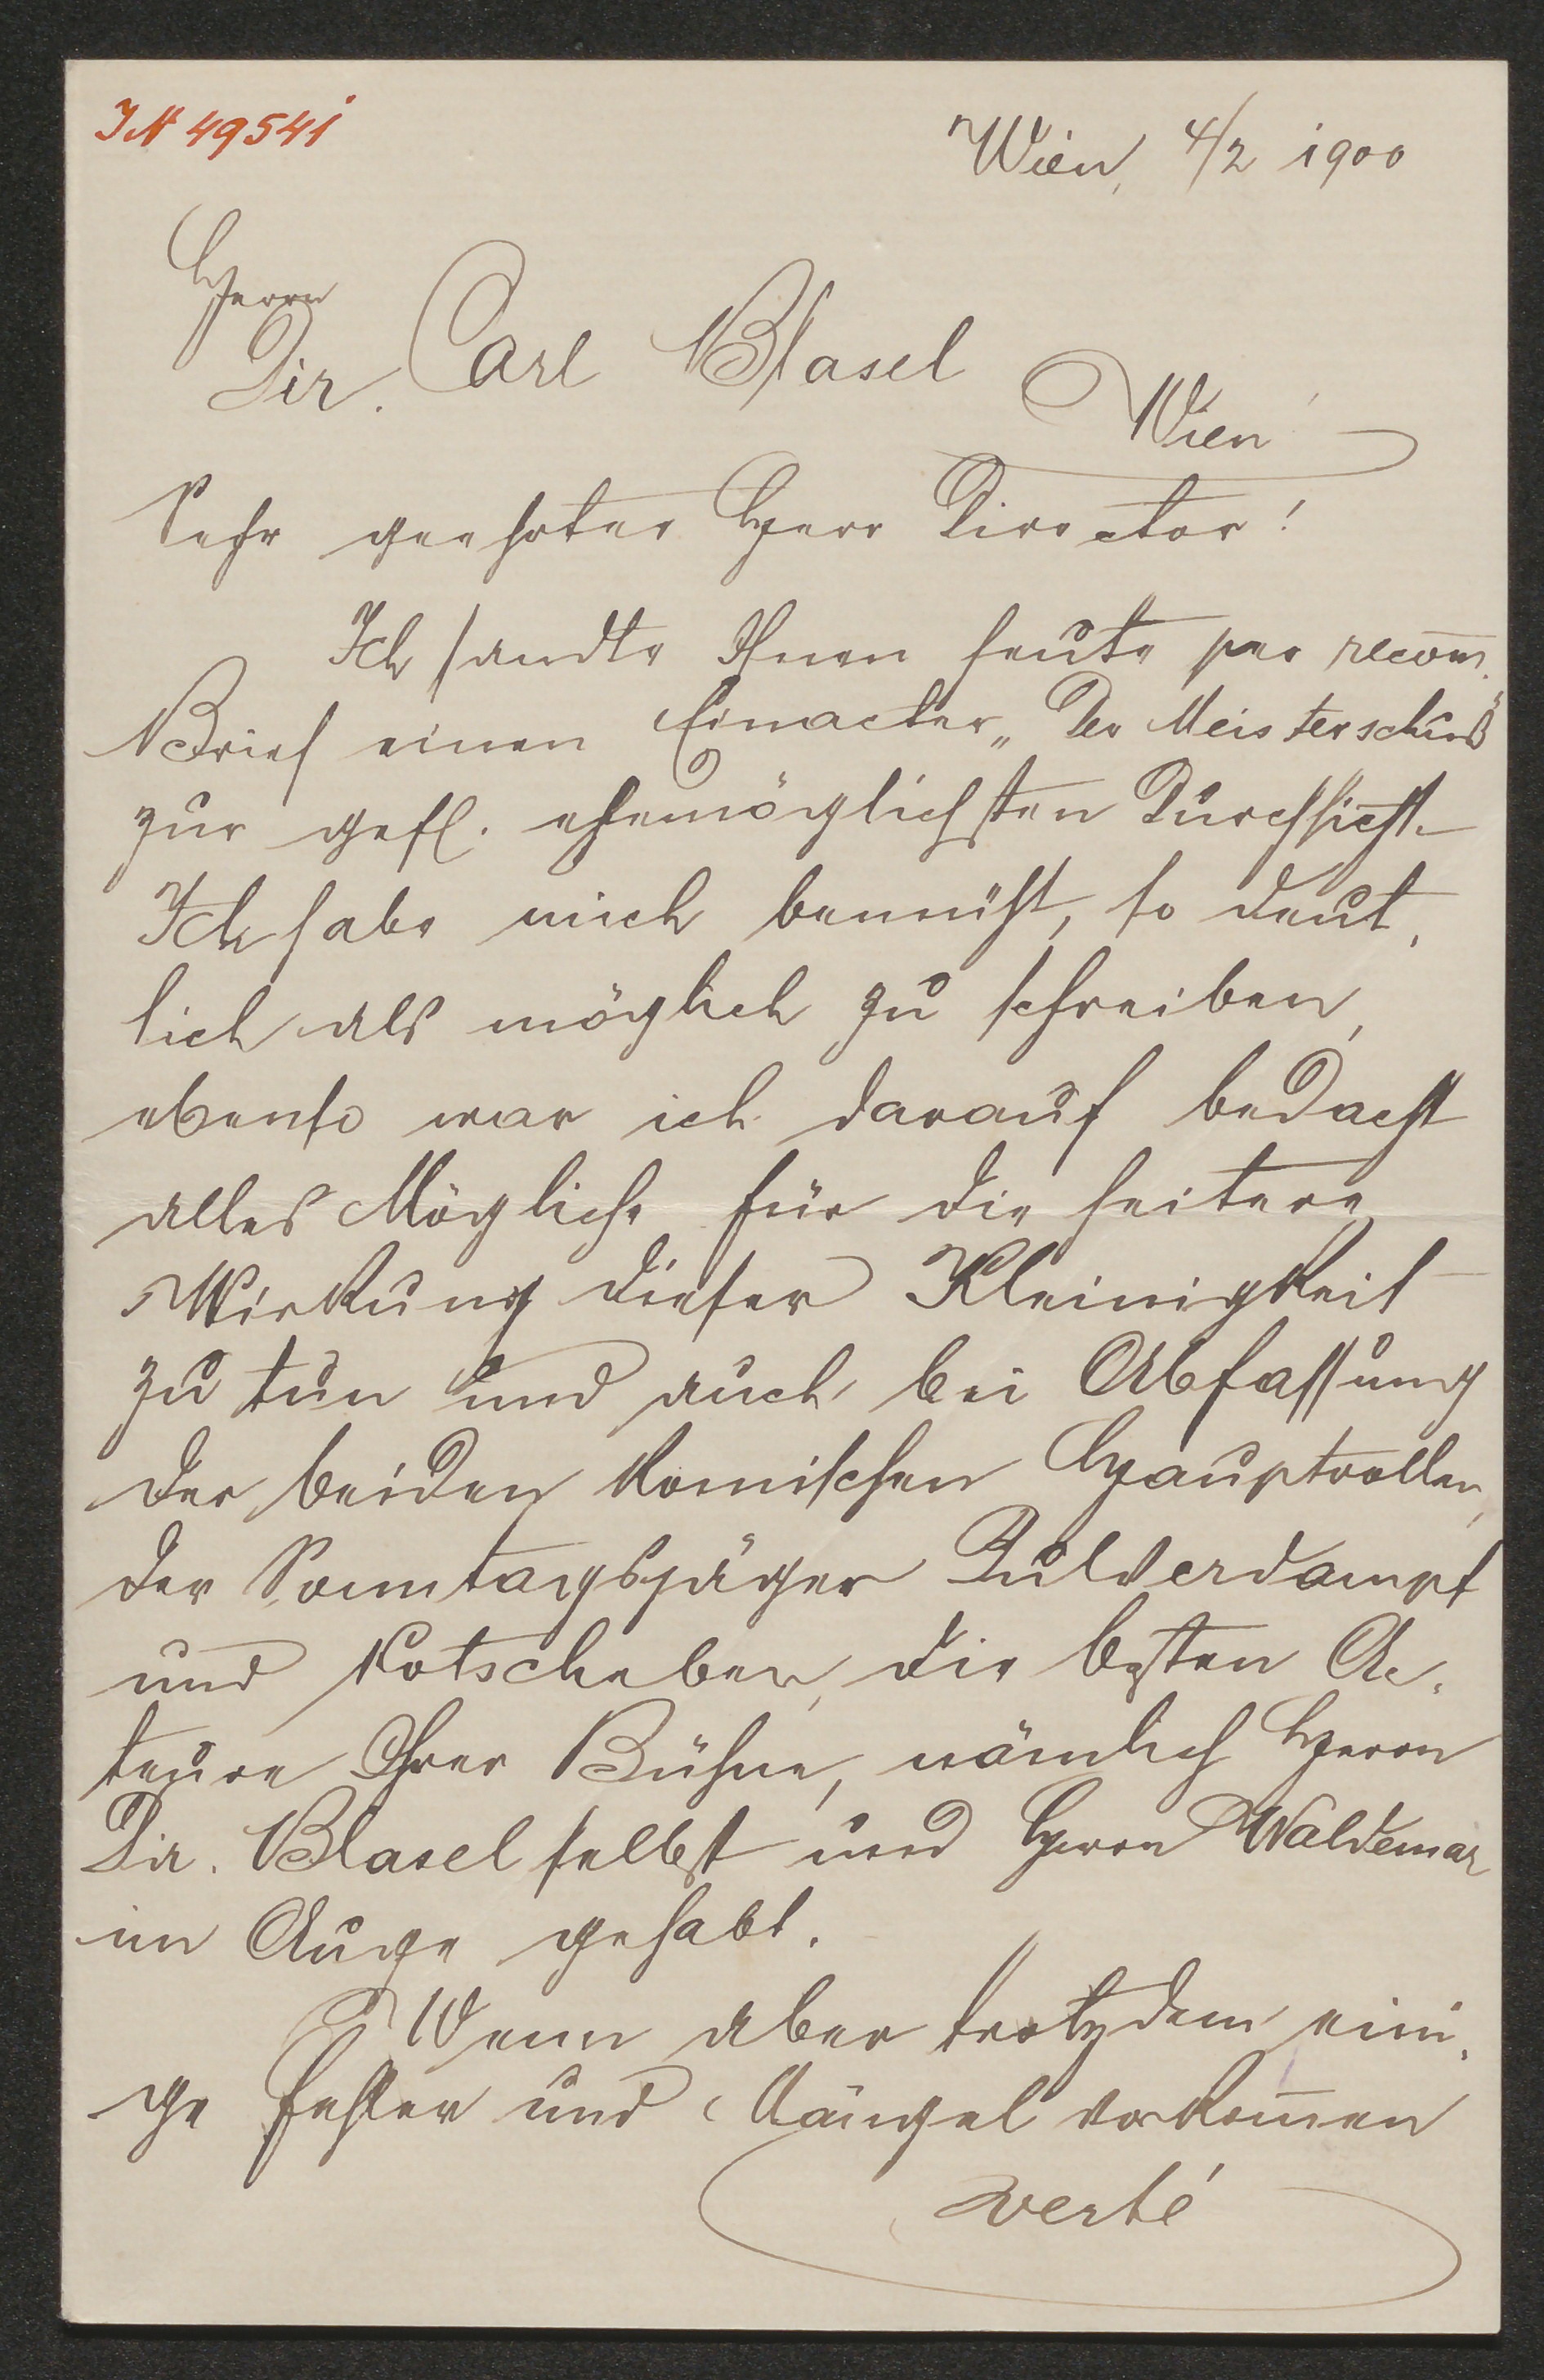 IN 49541
Wien, 4/2 1900
Herrn
Dir. Carl Blasel
Wien
Sehr geehrter Herr Director!
Ich sandte Ihnen heute per recom̅.
Brief einen Einacter „Der Meisterschuß"
zur gefl. ehemöglichsten Durchsicht.
Ich habe mich bemüht, so deut-
lich als möglich zu schreiben,
ebenso war ich darauf bedacht
alles Mögliche für die heitere
Wirkung dieser Kleinigkeit
zu tun und auch bei Abfassung
der beiden komischen Hauptrollen,
der Sonntagsjäger Pulverdampf
und Kotscheber, die besten Ac-
teure Ihrer Bühne, nämlich Herrn
Dir. Blasel selbst und Herrn Waldemar
im Auge gehabt.
Wenn aber trotzdem eini-
ge Fehler und Mängel vorkom̅en
verte